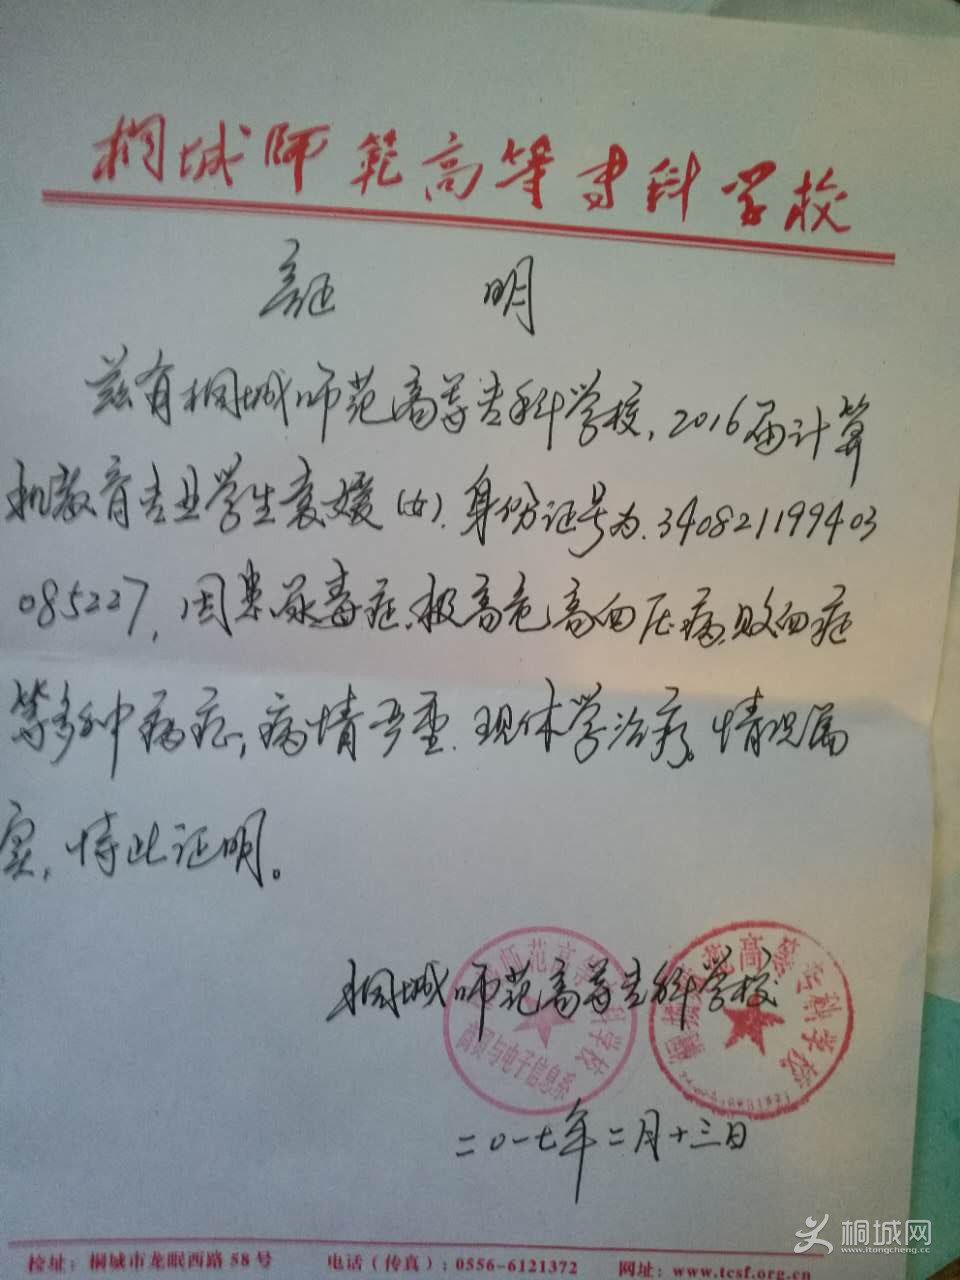 桐城师范高等专科学校
证 明
兹有桐城师范高等专科学校,2016届计算
机教育专业学生袁媛(女).身份证号为.340821199403
085227,因患尿毒症.极高危高血压病.败血症
等多种病症,病情严重.现休学治疗。情况属
实,特此证明。
桐城师范高等专科学校
师范高等
科学校
商贸与电子信息系
桐城师范高等专科学校
二〇一七年二月十三日
校址:桐城市龙眠西路58号 电话(传真):0556-6121372 网址:www.tcsf.org.cn
桐城网
www.itongcheng.cc